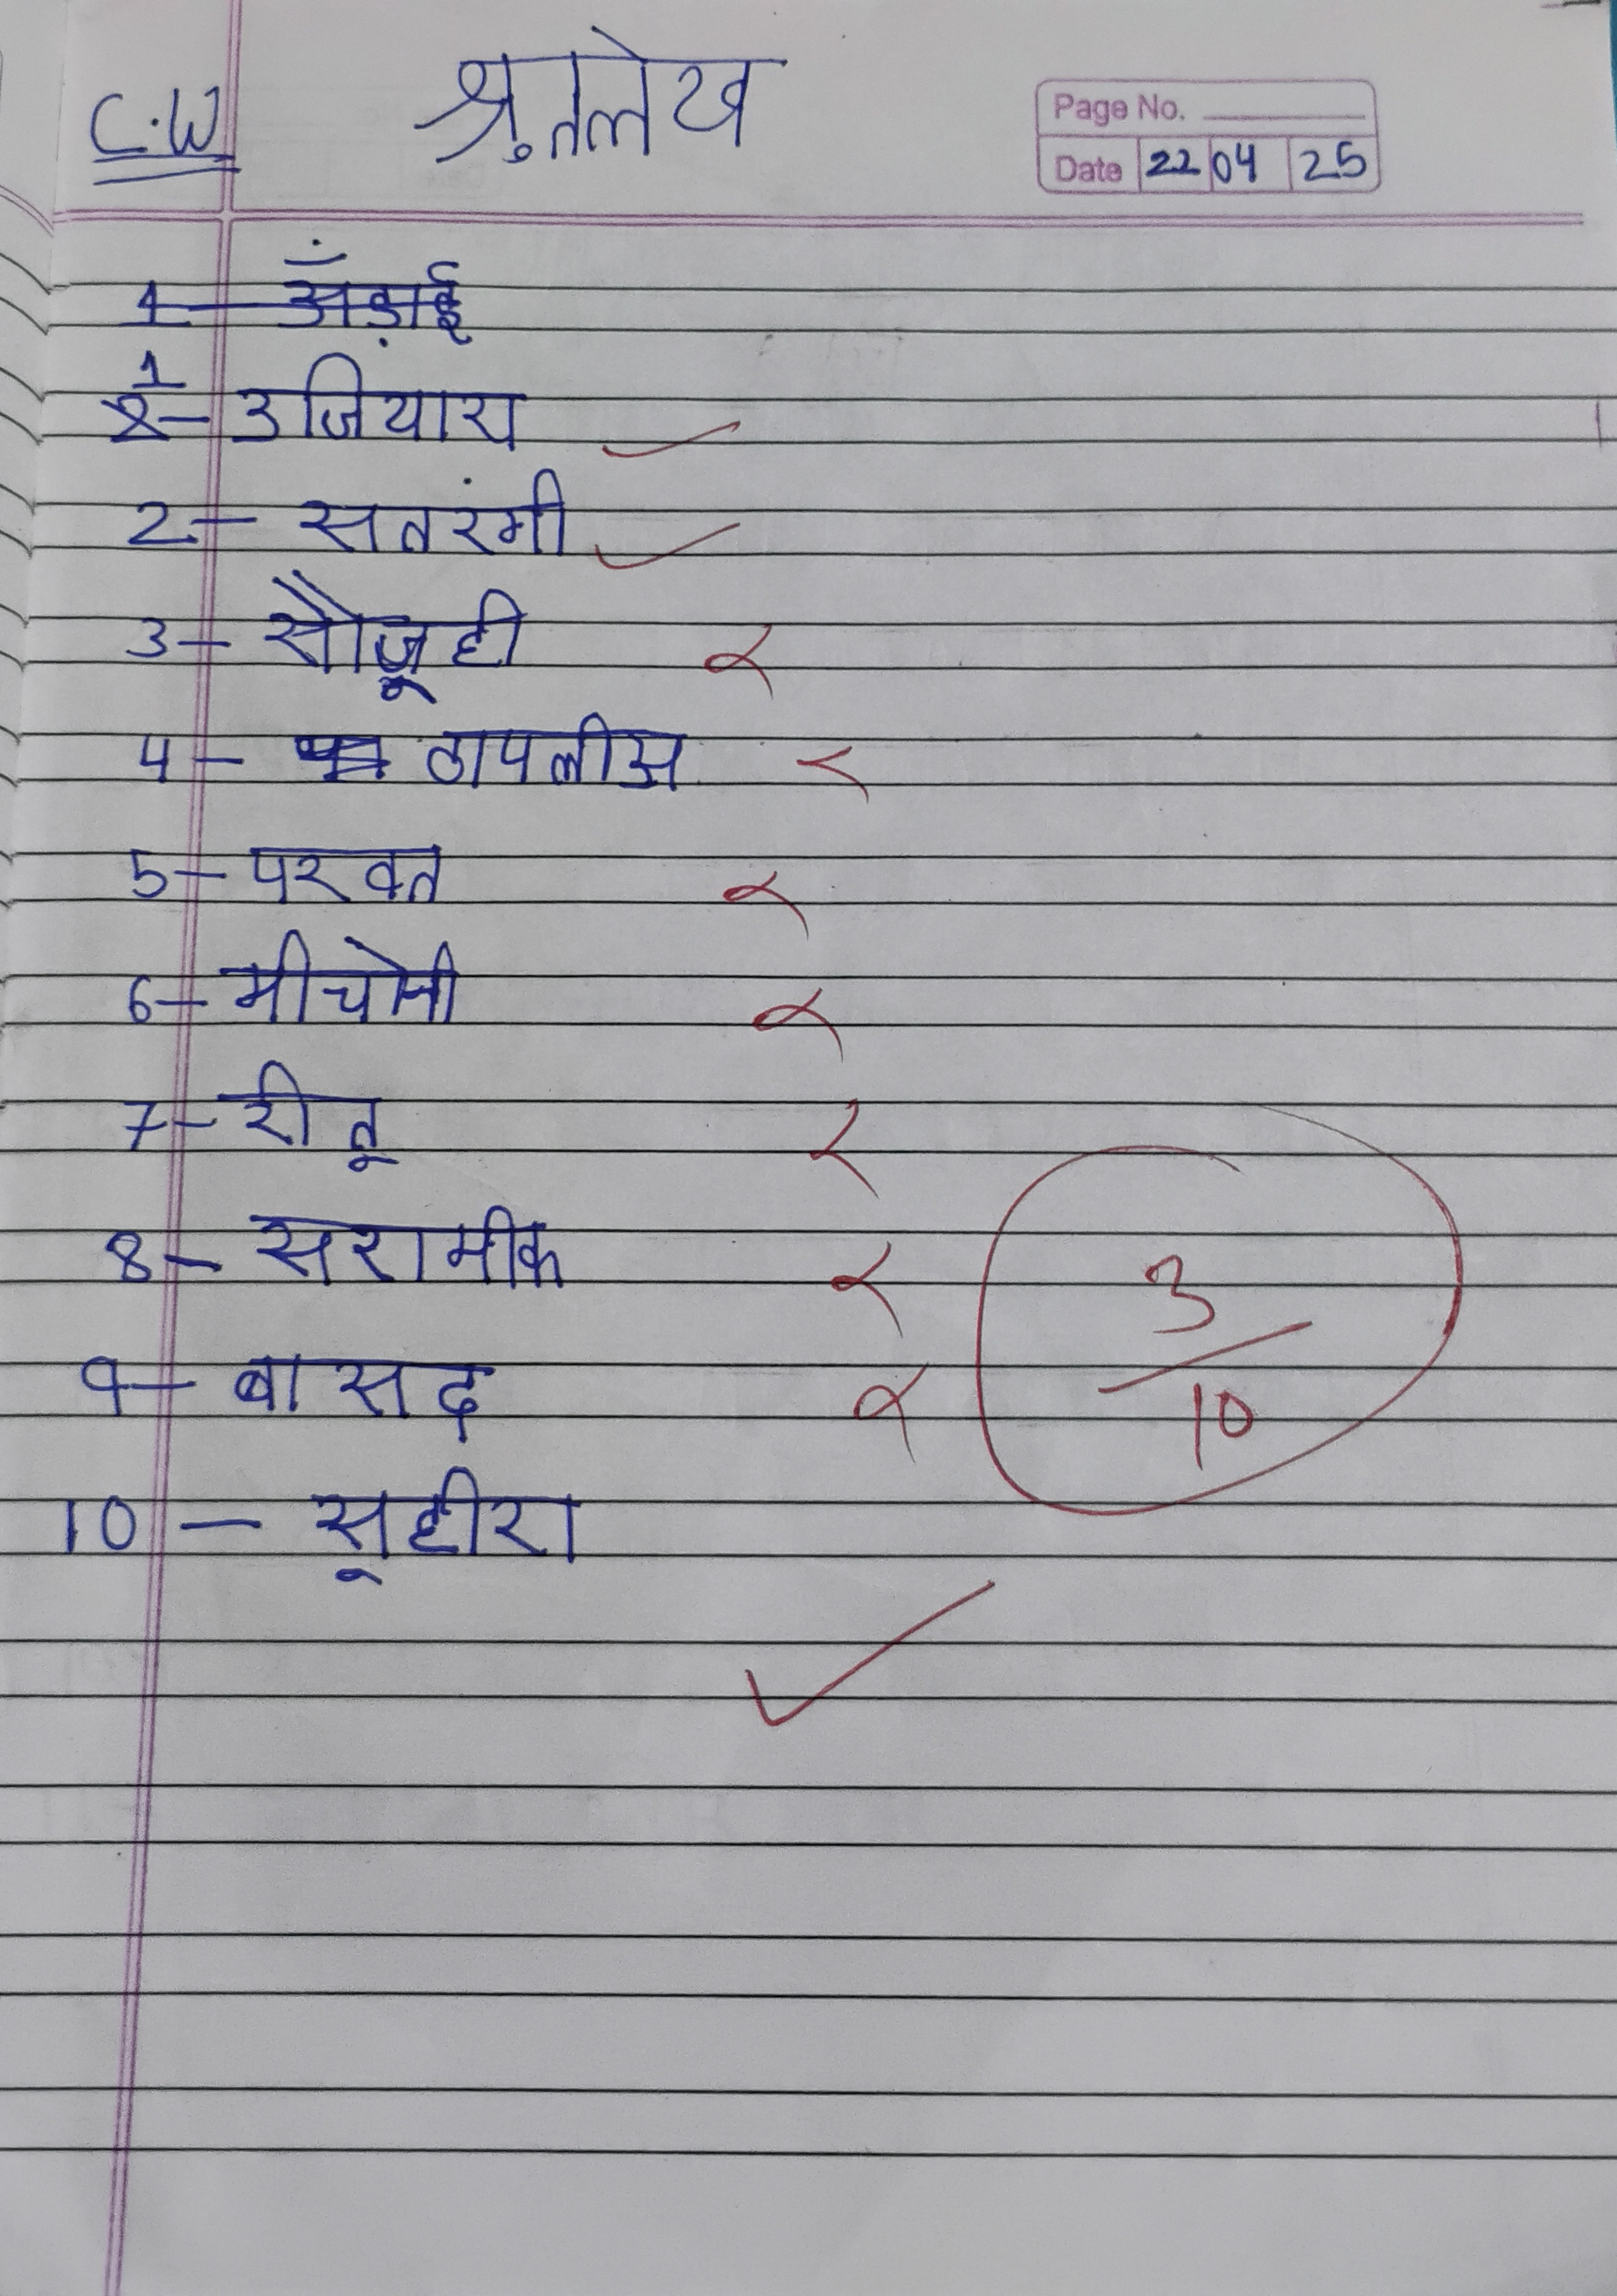 C.W श्रुतलेख
Page No.
Date 22 04 25
1 - अँड़ाई
1
2 - उजियारा
2 - सतरंगी
3 - सौजूही
4 - ठापलीस
5 - परवत
6 - मीचोनी
7 - रीतू
8 - सरामीक
9 - बासद
10 - सूहीरा
3
10